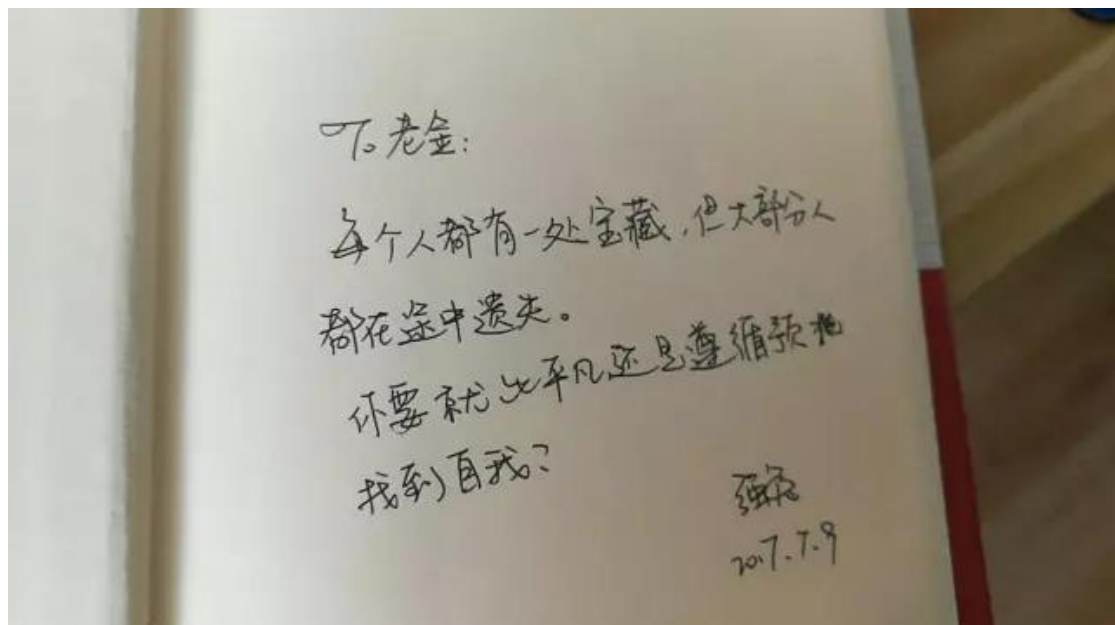 To 老金:
每个人都有一处宝藏,但大部分人
都在途中遗失。
你要就此平凡还是遵循预兆
找到自我?
2017.7.9